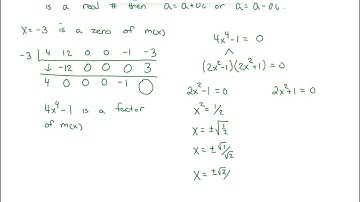 is a real # then a = a+0i or a = a-0i.
x = -3 is a zero of m(x)
-3 | 4 12 0 0 -1 -3
↓ -12 0 0 0 3
4 0 0 0 -1 0
4x⁴-1 is a factor
of m(x)
4x⁴-1 = 0
(2x²-1)(2x²+1) = 0
2x²-1=0 2x²+1=0
x² = 1/2
x = ±√(1/2)
x = ±√1/√2
x = ±√2/